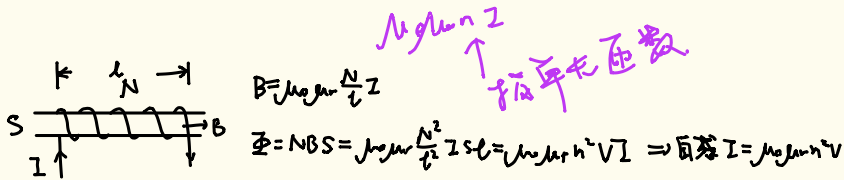 μ₀μᵣnI
↑
指单长匝数
l
N
S
B
I
B=μ₀μᵣ\frac{N}{l}I
Φ=NBS=μ₀μᵣ\frac{N²}{l²}ISl=μ₀μᵣn²VI ⇒自感I=μ₀μᵣn²V